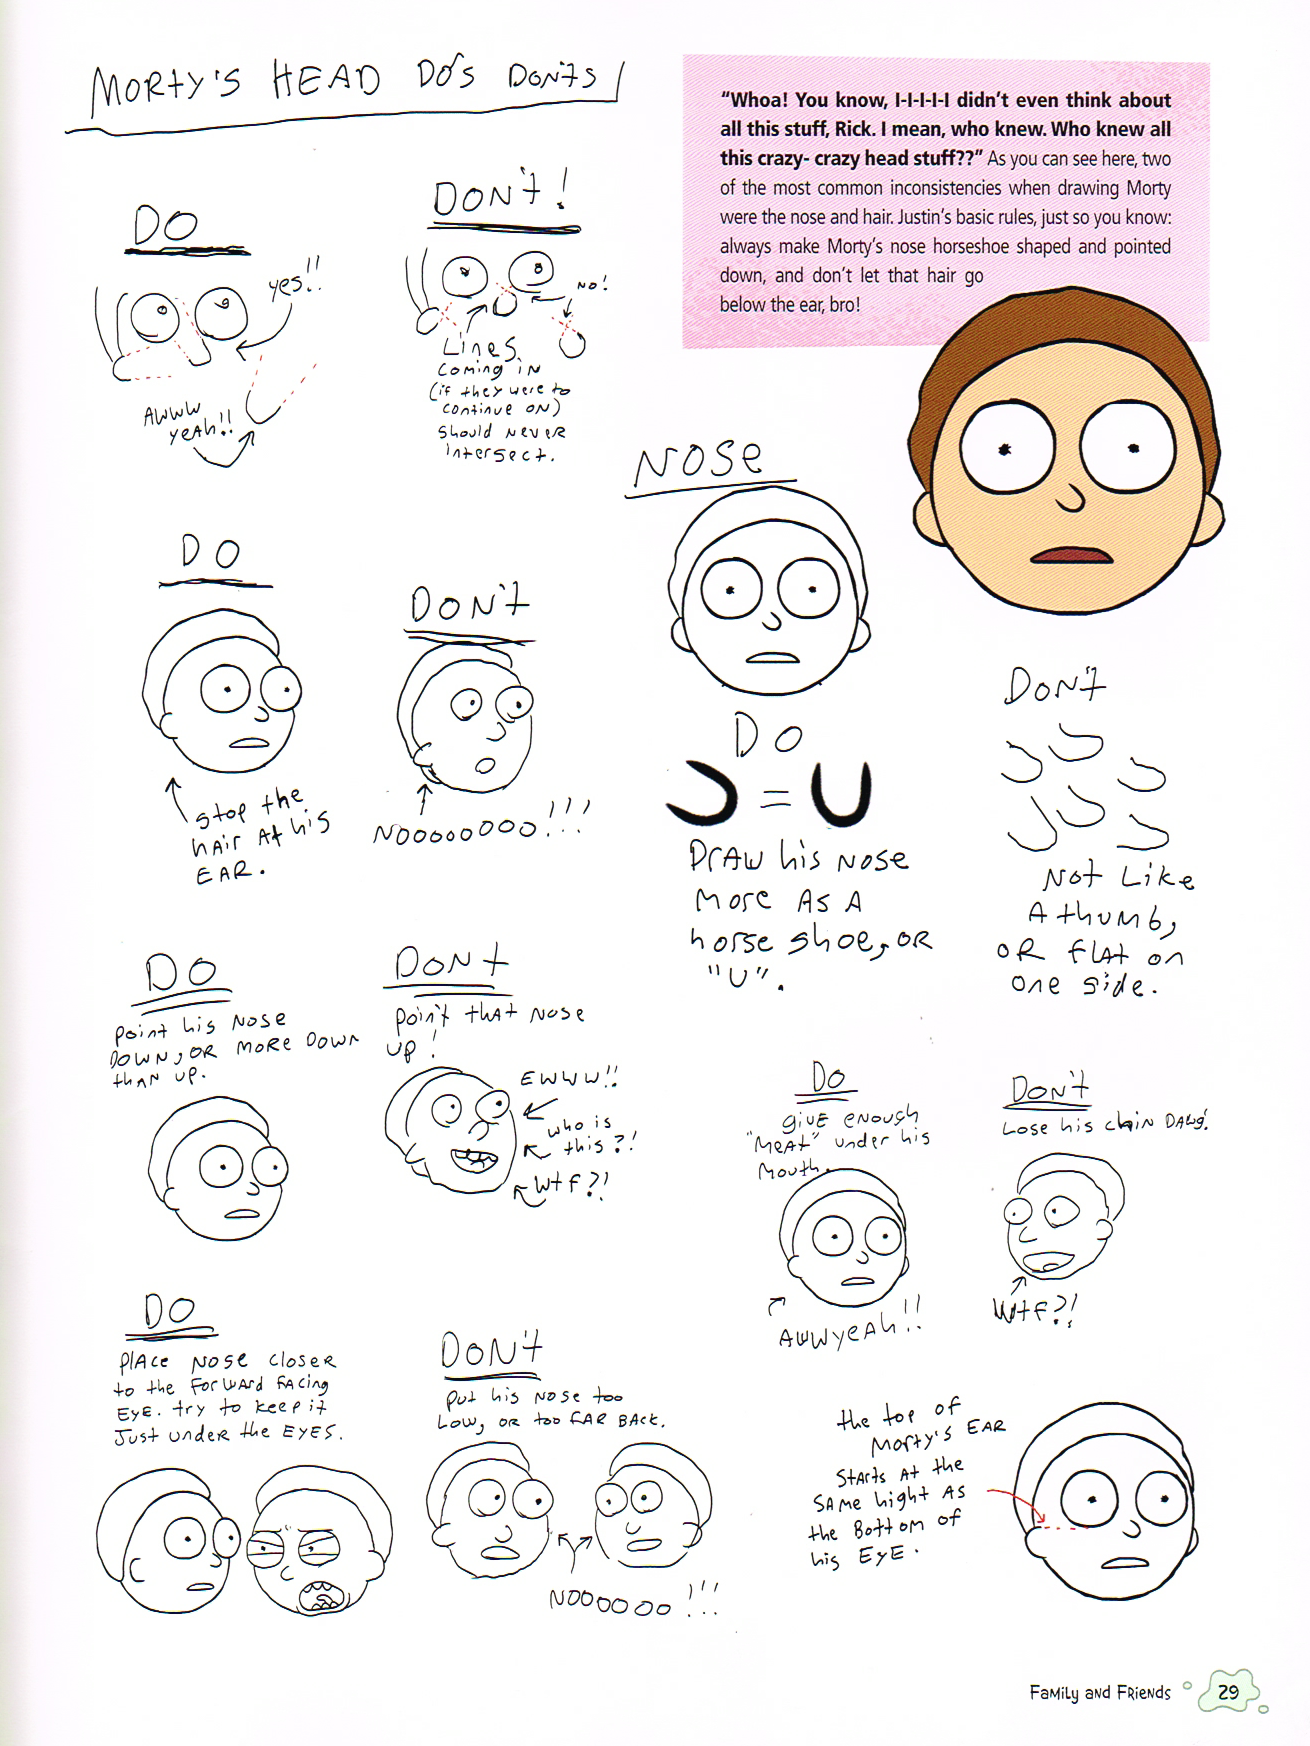 MORTY'S HEAD DO'S DON'TS
"Whoa! You know, I-I-I-I-I didn't even think about
all this stuff, Rick. I mean, who knew. Who knew all
this crazy- crazy head stuff??" As you can see here, two
of the most common inconsistencies when drawing Morty
were the nose and hair. Justin's basic rules, just so you know:
always make Morty's nose horseshoe shaped and pointed
down, and don't let that hair go
below the ear, bro!
DO
yes!!
AWWW
yeAh!!
DON'T!
NO!
Lines
coming in
(if they were to
continue on)
should never
intersect.
DO
stop the
hair at his
EAR.
DON'T
NOOOOOOOO!!!
NOSE
DO
U = U
Draw his nose
more as a
horse shoe, or
"U".
DON'T
Not like
a thumb,
or flat on
one side.
DO
point his nose
down, or more down
than up.
DON'T
point that nose
up!
EWWW!!
who is
this?!
Wtf?!
DO
give enough
"meat" under his
mouth.
AWWyeah!!
DON'T
Lose his chin DAWG!
Wtf?!
DO
place nose closer
to the forward facing
eye. try to keep it
just under the eyes.
DON'T
put his nose too
low, or too far back.
NOOOOOO!!!
the top of
Morty's ear
starts at the
same hight as
the bottom of
his eye.
Family and Friends
29